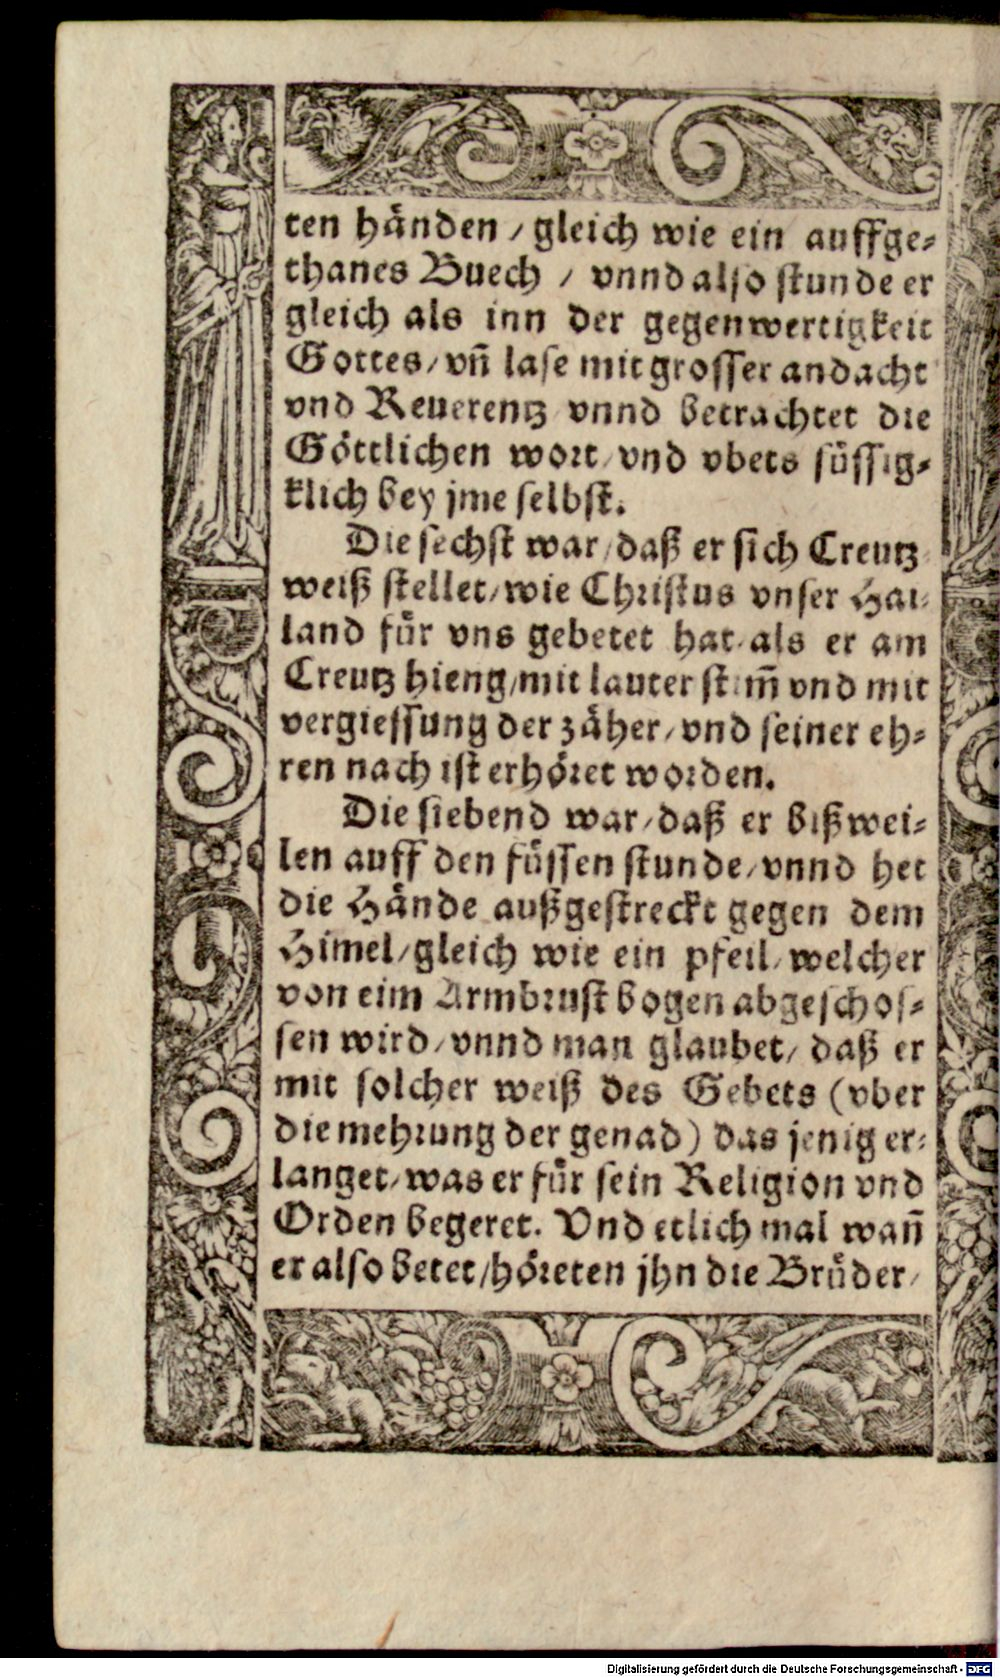 ten händen / gleich wie ein auffge⸗
thanes Buech / vnnd also stunde er
gleich als inn der gegenwertigkeit
Gottes / vñ lase mit grosser andacht
vnd Reuerentz vnnd betrachtet die
Göttlichen wort / vnd vbets süssig⸗
klich bey jme selbst.
Die sechst war / daß er sich Creutz
weiß stellet / wie Christus vnser Hai⸗
land für vns gebetet hat / als er am
Creutz hieng / mit lauter stim̃ vnd mit
vergiessung der zäher / vnd seiner eh⸗
ren nach ist erhöret worden.
Die siebend war / daß er bißwei⸗
len auff den füssen stunde / vnnd het
die Hände außgestreckt gegen dem
Himel / gleich wie ein pfeil / welcher
von eim Armbrust bogen abgeschos⸗
sen wird / vnnd man glaubet / daß er
mit solcher weiß des Gebets (vber
die mehrung der genad) das jenig er⸗
langet / was er für sein Religion vnd
Orden begeret. Vnd etlich mal wañ
er also betet / höreten jhn die Brüder /
Digitalisierung gefördert durch die Deutsche Forschungsgemeinschaft - DFG